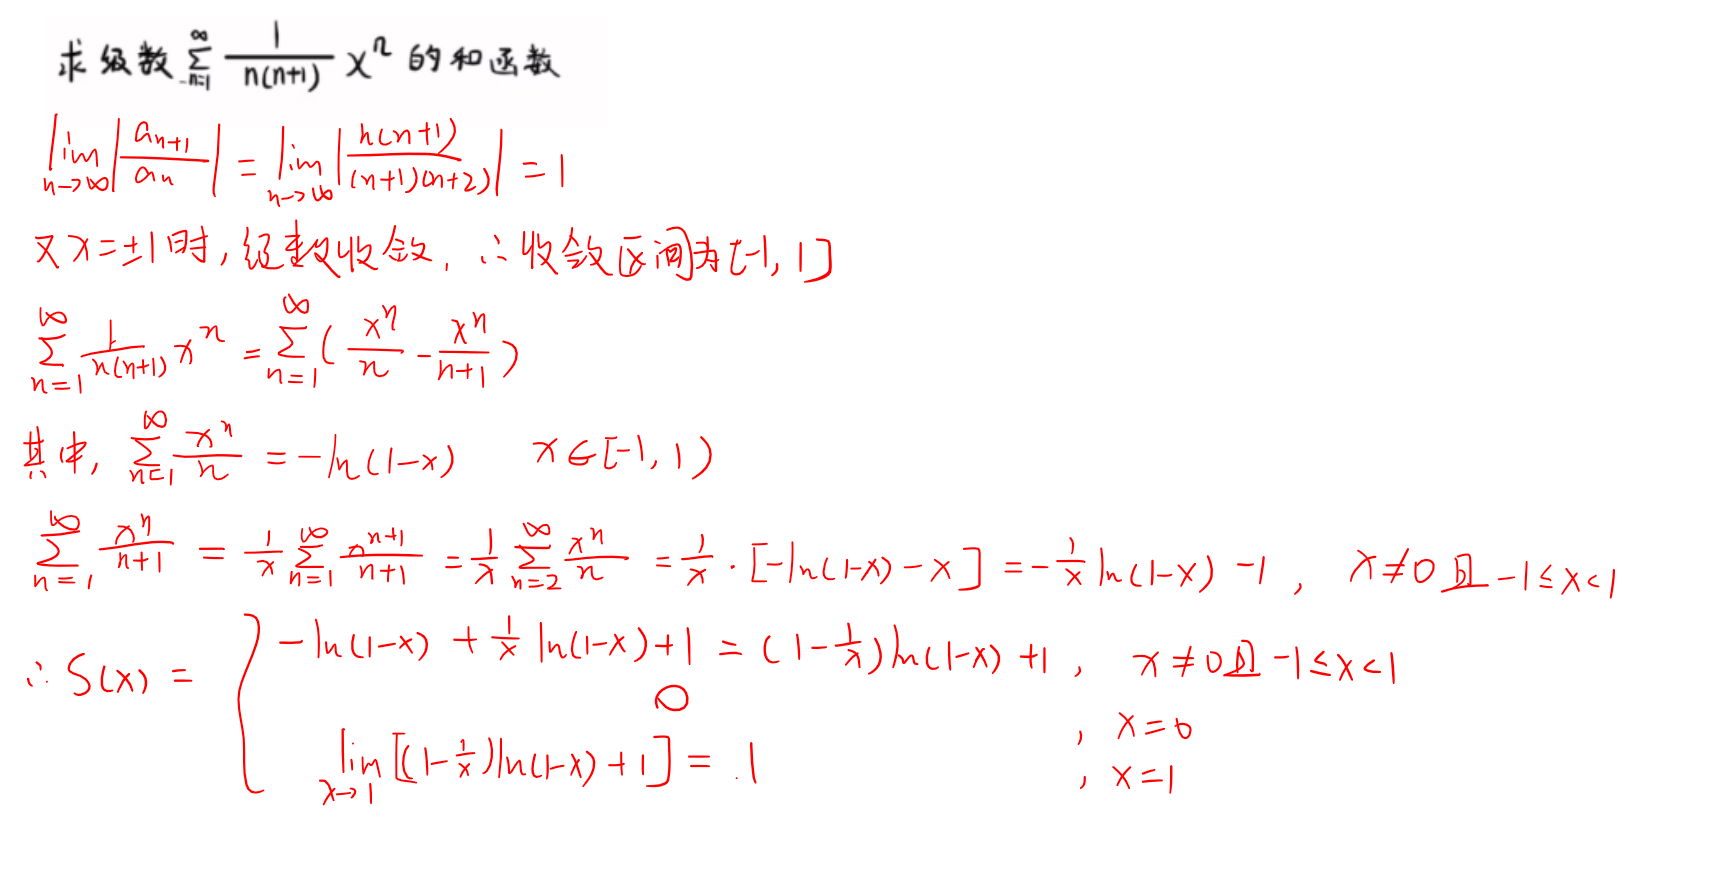 求级数 ∑_{n=1}^{∞} \frac{1}{n(n+1)} x^n 的和函数
lim_{n→∞} |\frac{a_{n+1}}{a_n}| = lim_{n→∞} |\frac{n(n+1)}{(n+1)(n+2)}| = 1
又x=±1时, 级数收敛, ∴收敛区间为[-1, 1]
∑_{n=1}^{∞} \frac{1}{n(n+1)} x^n = ∑_{n=1}^{∞} (\frac{x^n}{n} - \frac{x^n}{n+1})
其中, ∑_{n=1}^{∞} \frac{x^n}{n} = -ln(1-x) x∈[-1, 1)
∑_{n=1}^{∞} \frac{x^n}{n+1} = \frac{1}{x} ∑_{n=1}^{∞} \frac{x^{n+1}}{n+1} = \frac{1}{x} ∑_{n=2}^{∞} \frac{x^n}{n} = \frac{1}{x} · [-ln(1-x) - x] = -\frac{1}{x} ln(1-x) - 1 , x≠0且-1≤x<1
∴ S(x) = { -ln(1-x) + \frac{1}{x} ln(1-x) + 1 = (1-\frac{1}{x}) ln(1-x) + 1 , x≠0且-1≤x<1
0 , x=0
lim_{x→1} [(1-\frac{1}{x}) ln(1-x) + 1] = 1 , x=1